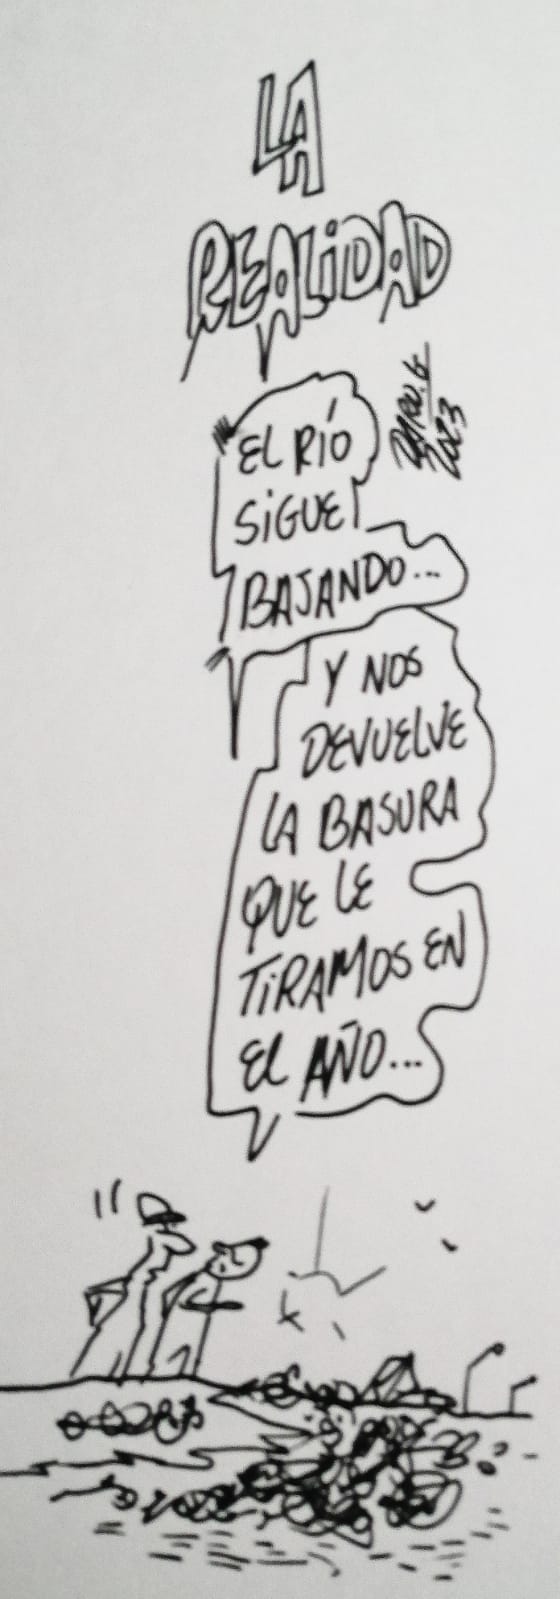 LA
REALIDAD
EL RÍO
SIGUE
BAJANDO...
Y NOS
DEVUELVE
LA BASURA
QUE LE
TIRAMOS EN
EL AÑO...
2023